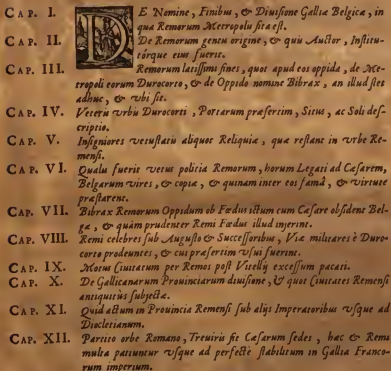 CAP. I. DE Nomine, Finibus, & Diuisione Galliæ Belgicæ, in
qua Remorum Metropolu sita est.
CAP. II. De Remorum gentu origine, & quu Auctor, Institu-
torque eius fuerit.
CAP. III. Remorum latissimi fines, quot apud eos oppida, de Me-
tropoli eorum Durocorto, & de Oppido nomine Bibrax, an illud stet
adhuc, & vbi sit.
CAP. IV. Veteru vrbu Durocorti, Portarum præsertim, Situs, ac Soli des-
criptio.
CAP. V. Insigniores vetustatu aliquot Reliquiæ, quæ restant in vrbe Re-
mensi.
CAP. VI. Qualu fuerit vetus politia Remorum, horum Legati ad Cæsarem,
Belgarum vires, & copiæ, & quinam inter eos famâ, & virtute
præstarent.
CAP. VII. Bibrax Remorum Oppidum ob Fœdus ictum cum Cæsare obsident Bel-
gæ, & quàm prudenter Remi Fœdus illud inierint.
CAP. VIII. Remi celebres sub Augusto & Successoribus, Viæ militares è Duro-
corto prodeuntes, & cui præsertim vsui fuerint.
CAP. IX. Motus Ciuitatum per Remos post Vitellij excessum pacati.
CAP. X. De Gallicanarum Prouinciarum diuisione, & quot Ciuitates Remensi
antiquitùs subjectæ.
CAP. XI. Quid actum in Prouincia Remensi sub alijs Imperatoribus vsque ad
Diocletianum.
CAP. XII. Partito orbe Romano, Treuiris fit Cæsarum sedes, hac & Remi
multa patiuntur vsque ad perfectè stabilitum in Gallia Franco-
rum imperium.